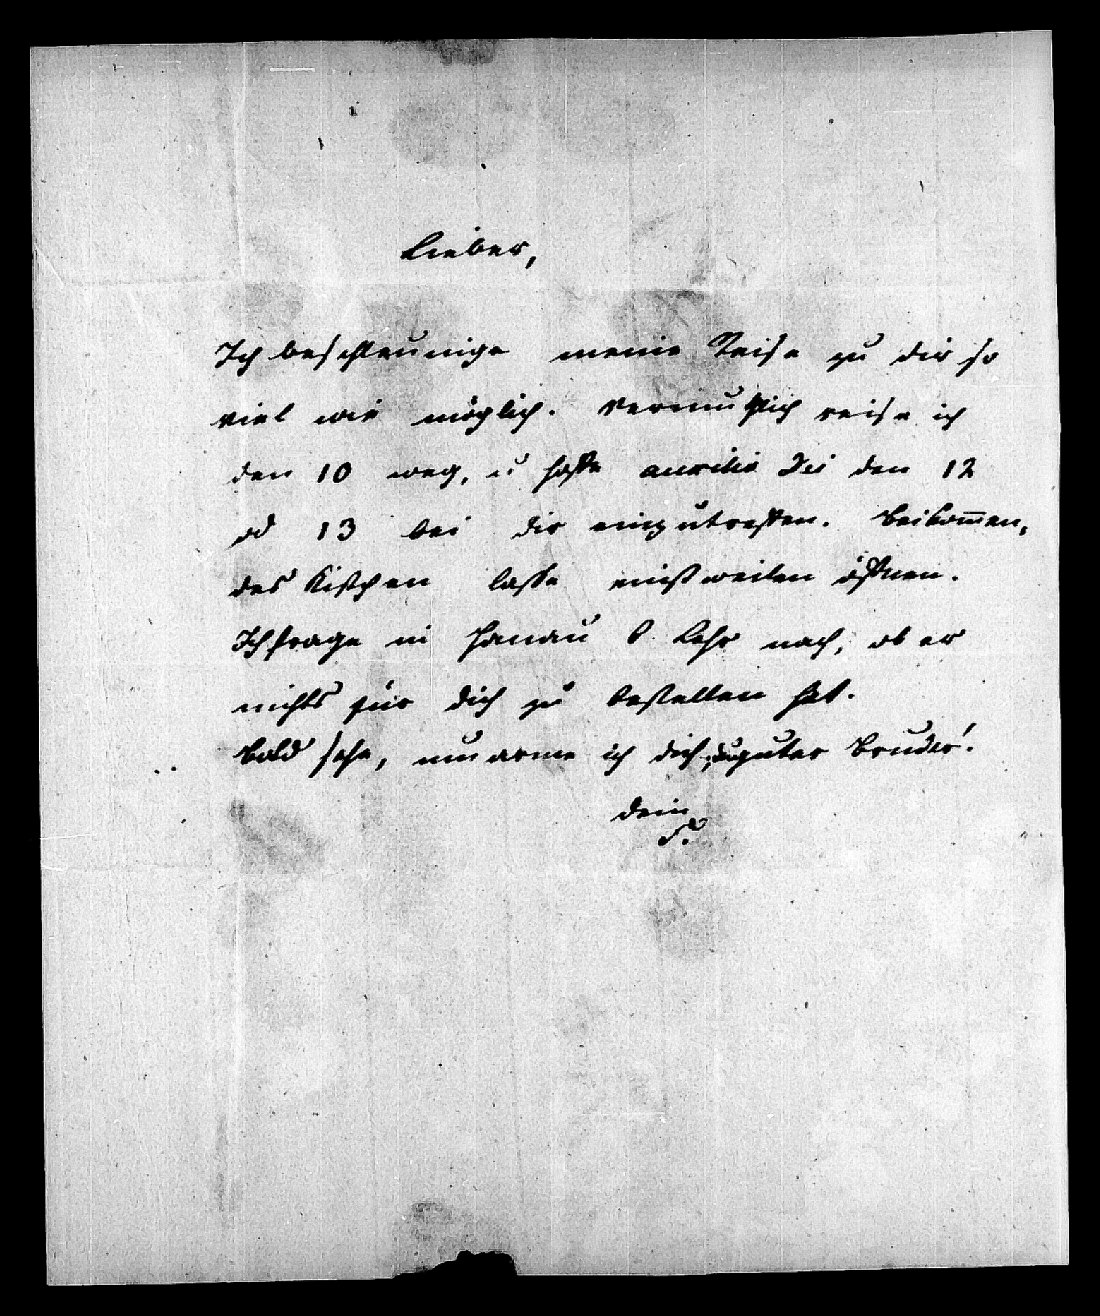 Lieber,
Ich beschleunige meine Reise zu dir so
viel wie möglich. Vermuthlich reise ich
den 10 weg, u hoffe auxilio Dei den 12
od 13 bei dir einzutreffen. Beikom̅en,
des Kistchen lasse einstweilen öffnen.
Ich frage in Hanau b. Lehr nach, ob er
nichts für dich zu bestellen hat.
bald sehe, umarme ich dich, du guter Bruder!
dein
F.